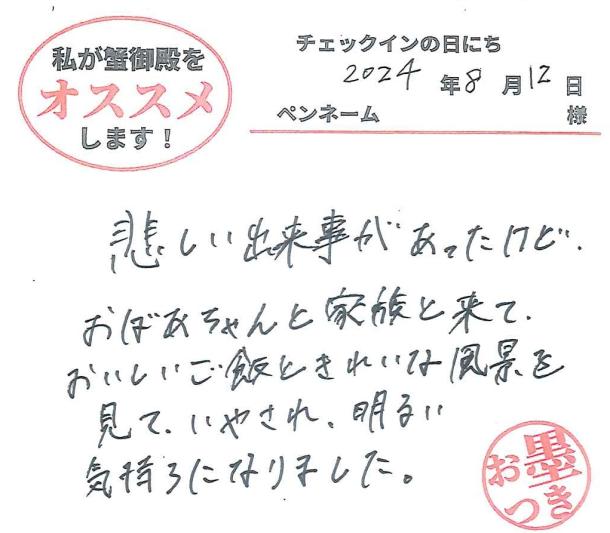 私が蟹御殿を
オススメ
します！
チェックインの日にち
2024年8月12日
ペンネーム 様
悲しい出来事があったけど、
おばあちゃんと家族と来て、
おいしいご飯ときれいな風景を
見て、いやされ、明るい
気持ちになりました。
お墨
つき